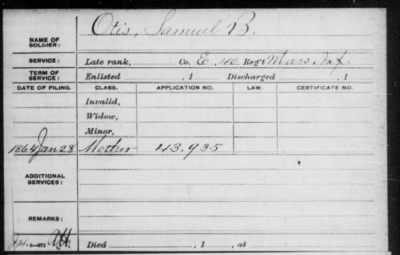 NAME OF SOLDIER: Otis, Samuel B.
SERVICE: Late rank, Co. E, 40 Reg't Mass. Inf.
TERM OF SERVICE: Enlisted , 1 Discharged , 1
DATE OF FILING. CLASS. APPLICATION NO. LAW. CERTIFICATE NO.
Invalid,
Widow,
Minor,
1864 Jan 28 Mother 43.935
ADDITIONAL SERVICES:
REMARKS:
Died , 1 , at